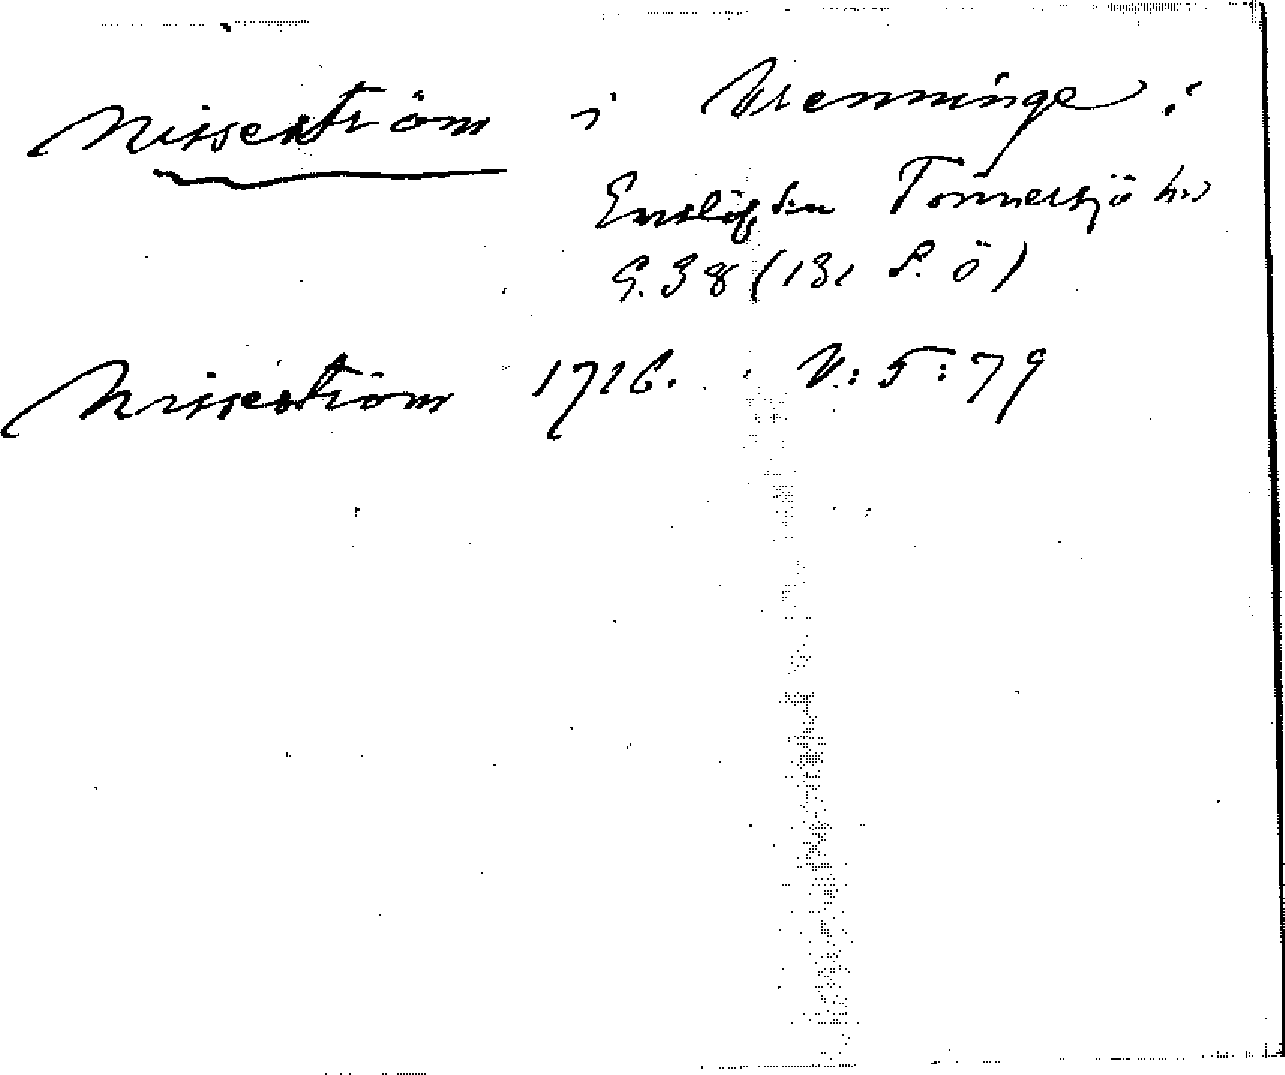 Nisseström i Wrenninge i
Enslöfs sn Tönnersjö hd
G. 38 (131 S. ö)
Nisseström 1716. V: 5: 79